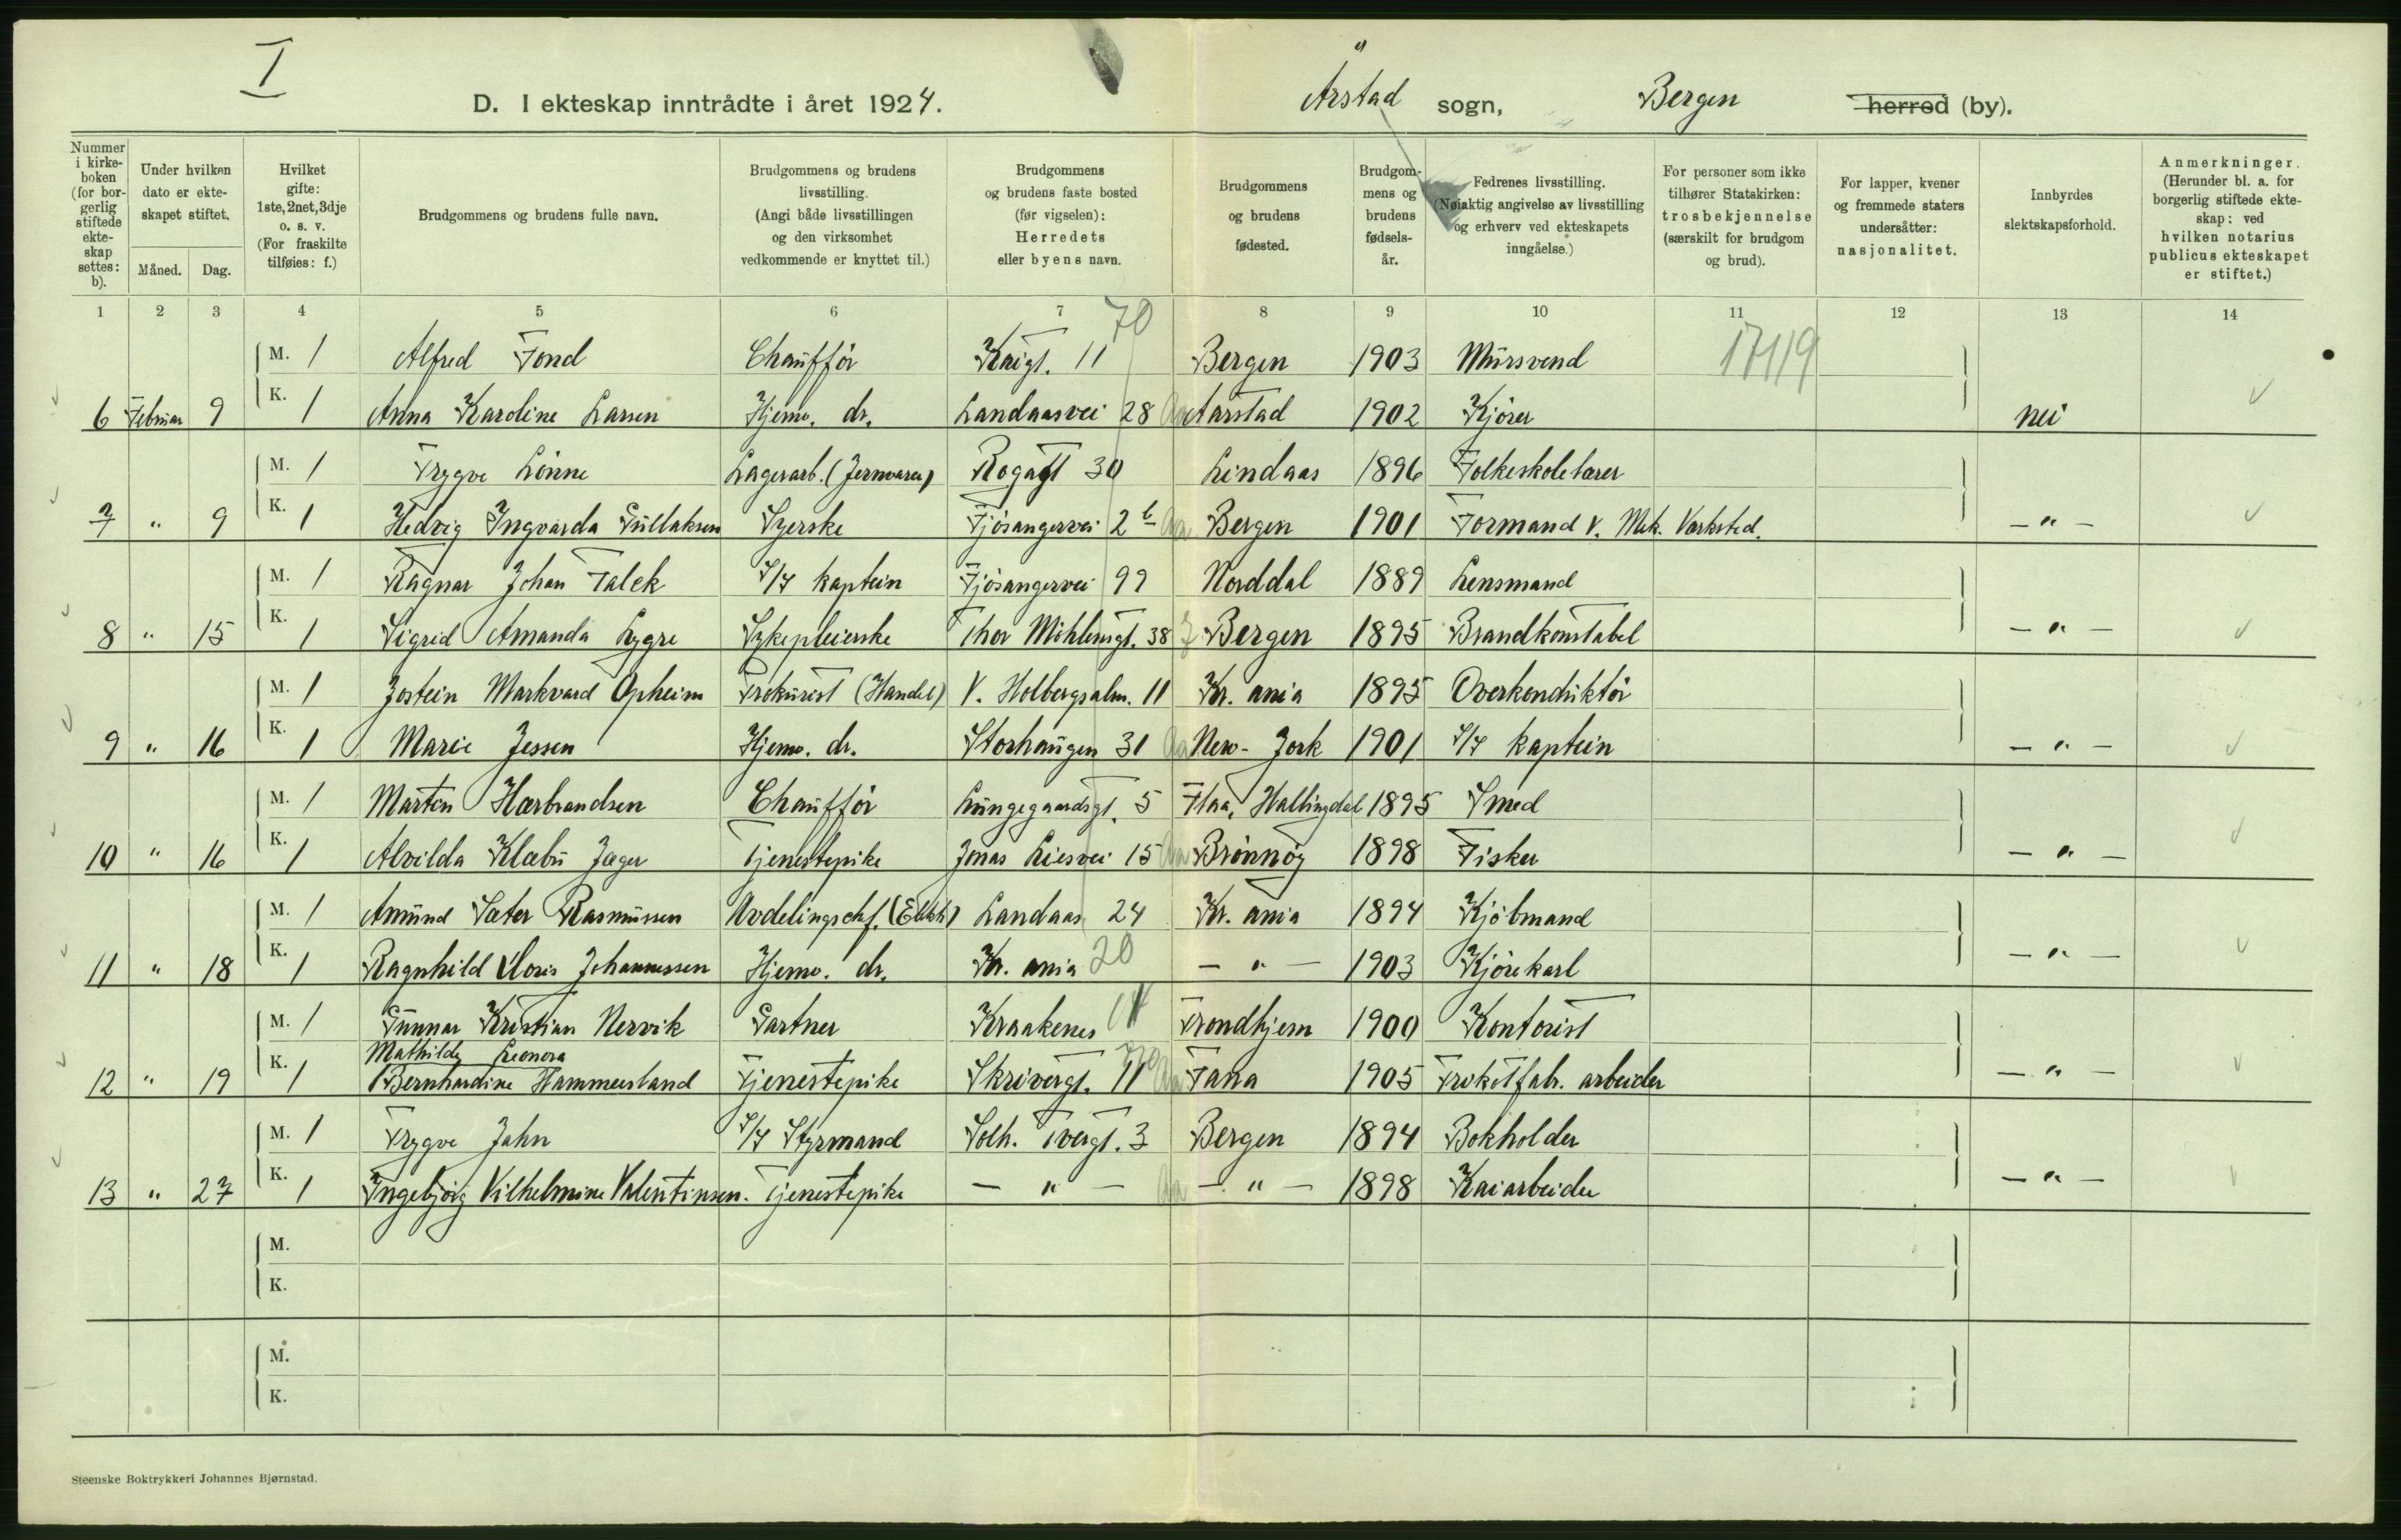 I
D. I ekteskap inntrådte i året 1924. Årstad sogn, Bergen herred (by).
Nummer i kirkeboken (for borgerlig stiftede ekteskap settes: b).
Under hvilken dato er ekteskapet stiftet.
Måned. Dag.
Hvilket gifte: 1ste, 2net, 3dje o. s. v. (For fraskilte tilføies: f.)
Brudgommens og brudens fulle navn.
Brudgommens og brudens livsstilling. (Angi både livsstillingen og den virksomhet vedkommende er knyttet til.)
Brudgommens og brudens faste bosted (før vigselen): Herredets eller byens navn.
Brudgommens og brudens fødested.
Brudgommens og brudens fødselsår.
Fedrenes livsstilling. (Nøiaktig angivelse av livsstilling og erhverv ved ekteskapets inngåelse.)
For personer som ikke tilhører Statskirken: trosbekjennelse (særskilt for brudgom og brud).
For lapper, kvener og fremmede staters undersåtter: nasjonalitet.
Innbyrdes slektskapsforhold.
Anmerkninger. (Herunder bl. a. for borgerlig stiftede ekteskap: ved hvilken notarius publicus ekteskapet er stiftet.)
1 2 3 4 5 6 7 8 9 10 11 12 13 14
70
M. 1 Alfred Tond Chauffør Kaigt. 11 Bergen 1903 Mursvend 17119
6 Februar 9 K. 1 Anna Karoline Larsen Hjemv. dr. Landaasvei 28 Aarstad 1902 Kjører nei
M. 1 Trygve Lønne Lagerarb. (Jernvarer) Rogagt 30 Lindaas 1896 Folkeskolelærer
7 " 9 K. 1 Hedvig Ingvarda Gullaksen Syerske Fjøsangervei 2 b Bergen 1901 Formand v. Mek. Værksted. - " -
M. 1 Ragnar Johan Falck S/S kaptein Fjøsangervei 99 Norddal 1889 Lensmand
8 " 15 K. 1 Sigrid Amanda Lygre Sykepleierske Thor Møhlensgt. 38 Bergen 1895 Brandkonstabel - " -
M. 1 Jostein Markvard Opheim Prokurist (Handel) V. Holbergsalm. 11 Kr. ania 1895 Overkonduktør
9 " 16 K. 1 Marie Jessen Hjemv. dr. Storhaugen 31 New-Jork 1901 S/S kaptein - " -
M. 1 Martin Hærbrandsen Chauffør Lungegaardsgt. 5 Flaa, Hallingdal 1895 Smed
10 " 16 K. 1 Alvilda Klæbu Jæger Tjenestepike Jonas Liesvei 15 Brønnøy 1898 Fisker - " -
M. 1 Amund Sæter Rasmussen Avdelingschf. (Elektr.) Landaas 24 Kr. ania 1894 Kjøbmand
11 " 18 K. 1 Ragnhild Doris Johannessen Hjemv. dr. Kr. ania 20 - " - 1903 Kjørekarl - " -
M. 1 Gunnar Kristian Nervik Gartner Kraakenes Trondhjem 1900 Kontorist
Mathilde Leonora
12 " 19 K. 1 Bernhardine Hammersland Tjenestepike Skrivergt. 11 Fana 1905 Trikotfabr. arbeider - " -
M. 1 Trygve Jahn S/S Styrmand Solh. Tvergt. 3 Bergen 1894 Bokholder
13 " 27 K. 1 Ingebjørg Vilhelmine Valentinsen. Tjenestepike - " - - " - 1898 Kaiarbeider - " -
M.
K.
M.
K.
Steenske Boktrykkeri Johannes Bjørnstad.